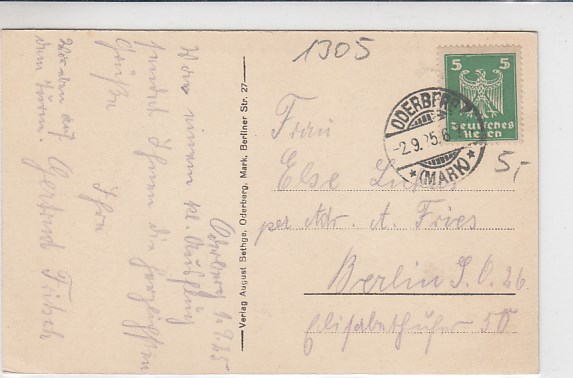 1305
5 5
Deutsches
Reich
ODERBERG
-2.9.25.6
*(MARK)*
5,-
Frau
Else
per Adr. A. Fries
Berlin S.O. 26
Elisabethufer 50
Verlag August Bethge, Oderberg, Mark, Berliner Str. 27
Oderberg 1.9.25
Von einem kl. Ausflug
sendet Ihnen die herzlichsten
Grüße
Ihre
Gertrud Fritsch
Wir aben auf
dem Turm.